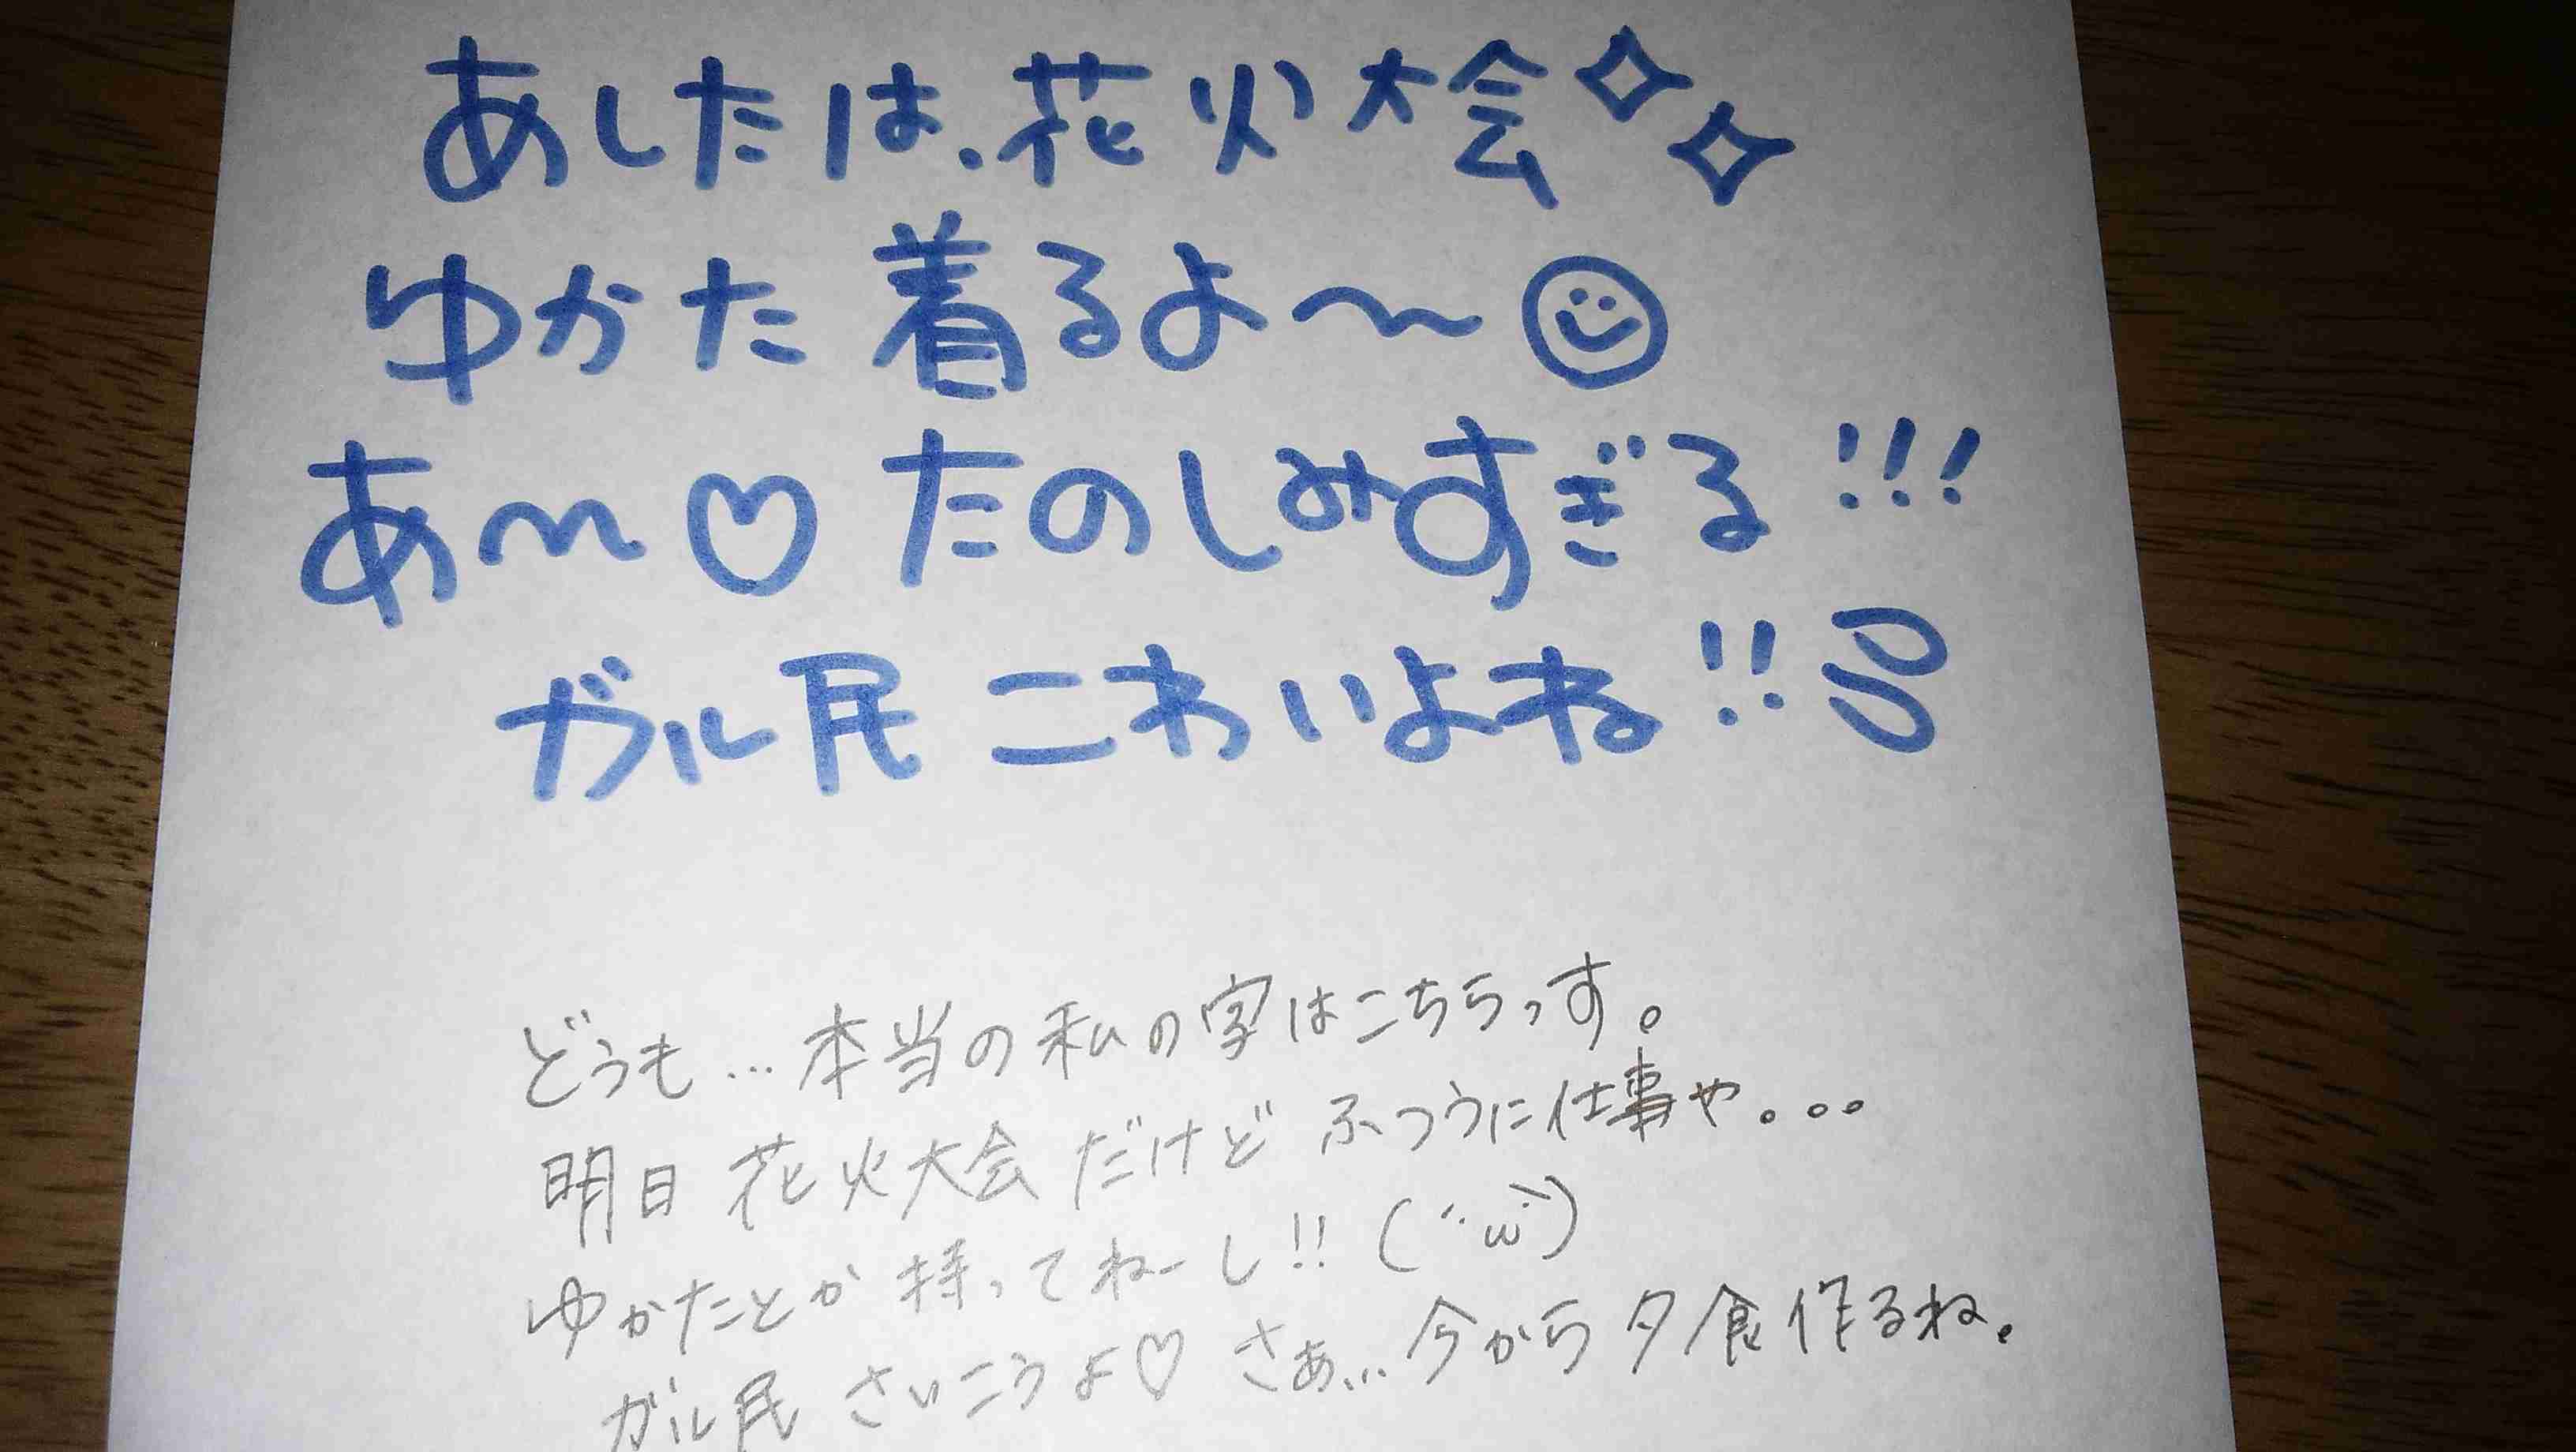 あしたは、花火大会✧✧
ゆかた着るよ〜☺
あ〜♡たのしみすぎる!!!
ガル民こわいよね!!
どうも…本当の私の字はこちらっす。
明日花火大会だけどふつうに仕事や。。。
ゆかたとか持ってねーし!!(´･ω･`)
ガル民さいこうよ♡さぁ…今から夕食作るね。